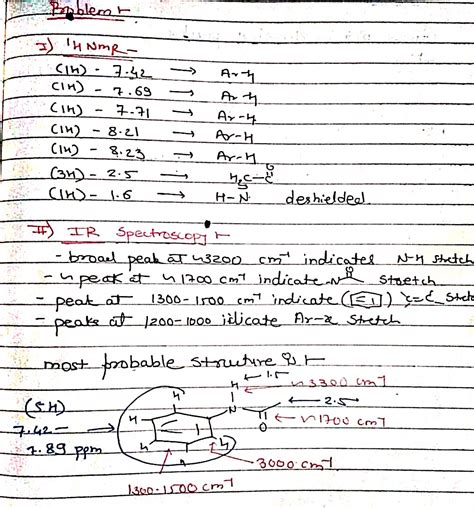 Problem :-
I) 1H NMR -
(1H) - 7.42 → Ar-H
(1H) - 7.69 → Ar-H
(1H) - 7.71 → Ar-H
(1H) - 8.21 → Ar-H
(1H) - 8.23 → Ar-H
(3H) - 2.5 → H3C-C O
(1H) - 1.6 → H-N deshielded
II) IR Spectroscopy :-
- broad peak at ~3200 cm-1 indicates N-H stretch
- peak at ~1700 cm-1 indicate -N O Stretch
- peak at 1300-1500 cm-1 indicate C=C
- peaks at 1200-1000 Ar-x Stretch
most probable is :-
H ← 1.5
← ~3300 cm-1
(5H) H H N ← 2.5
7.42 - → H O ← ~1700 cm-1
7.89 ppm H H H
3000 cm-1
1300-1500 cm-1